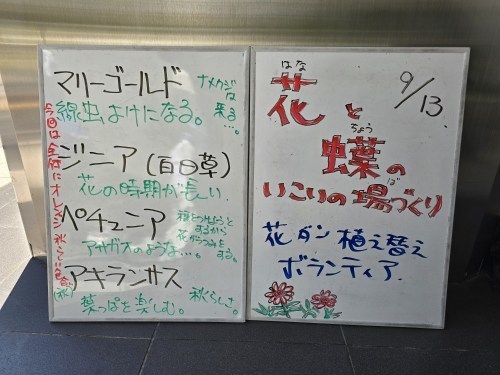 マリーゴールド
ナメクジは
来る…。
線虫よけになる。
ジニア(百日草)
花の時期が長い。
ペチュニア
アサガオのような…。
花がらつみを
する。
アキランサス
葉っぱを楽しむ。
秋らしさ。
今回は全体にオレンジ
(秋)
9/13.
はな
花と
ちょう
蝶の
ば
いこいの場づくり
花ダン植え替え
ボランティア.